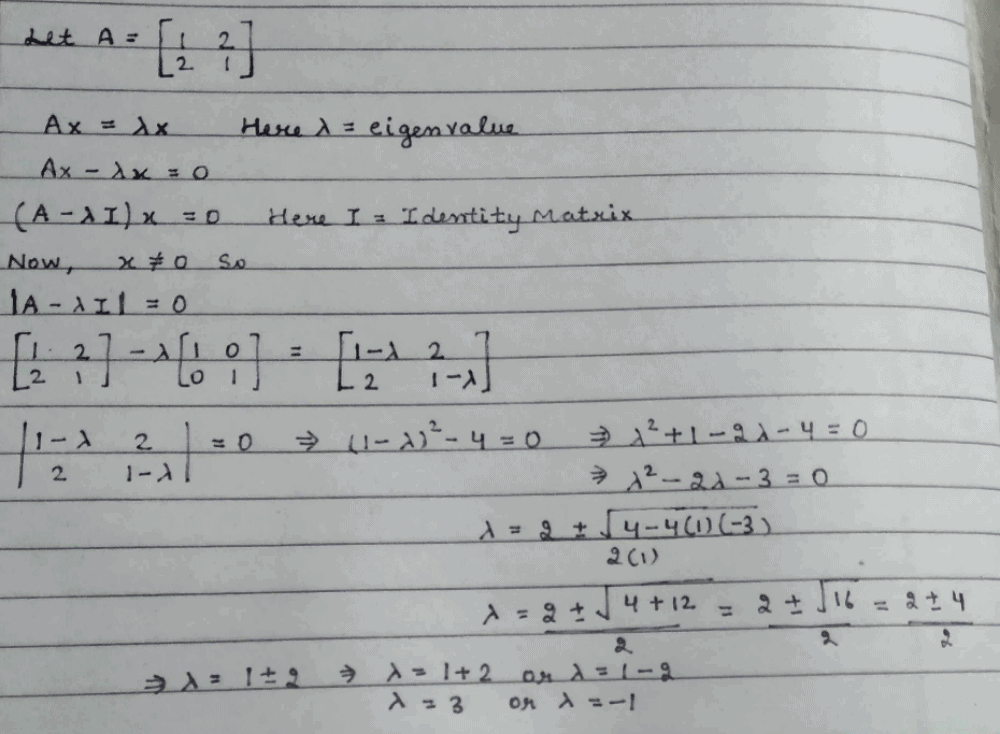 Let A = [1 2
2 1]
Ax = λx Here λ = eigenvalue
Ax - λx = 0
(A - λI)x = 0 Here I = Identity Matrix
Now, x ≠ 0 So
|A - λI| = 0
[1 2
2 1] - λ[1 0
0 1] = [1-λ 2
2 1-λ]
|1-λ 2
2 1-λ| = 0 ⇒ (1-λ)² - 4 = 0 ⇒ λ² + 1 - 2λ - 4 = 0
⇒ λ² - 2λ - 3 = 0
λ = 2 ± √4-4(1)(-3)
2(1)
λ = 2 ± √4+12 = 2 ± √16 = 2 ± 4
2 2 2
⇒ λ = 1 ± 2 ⇒ λ = 1+2 or λ = 1-2
λ = 3 or λ = -1